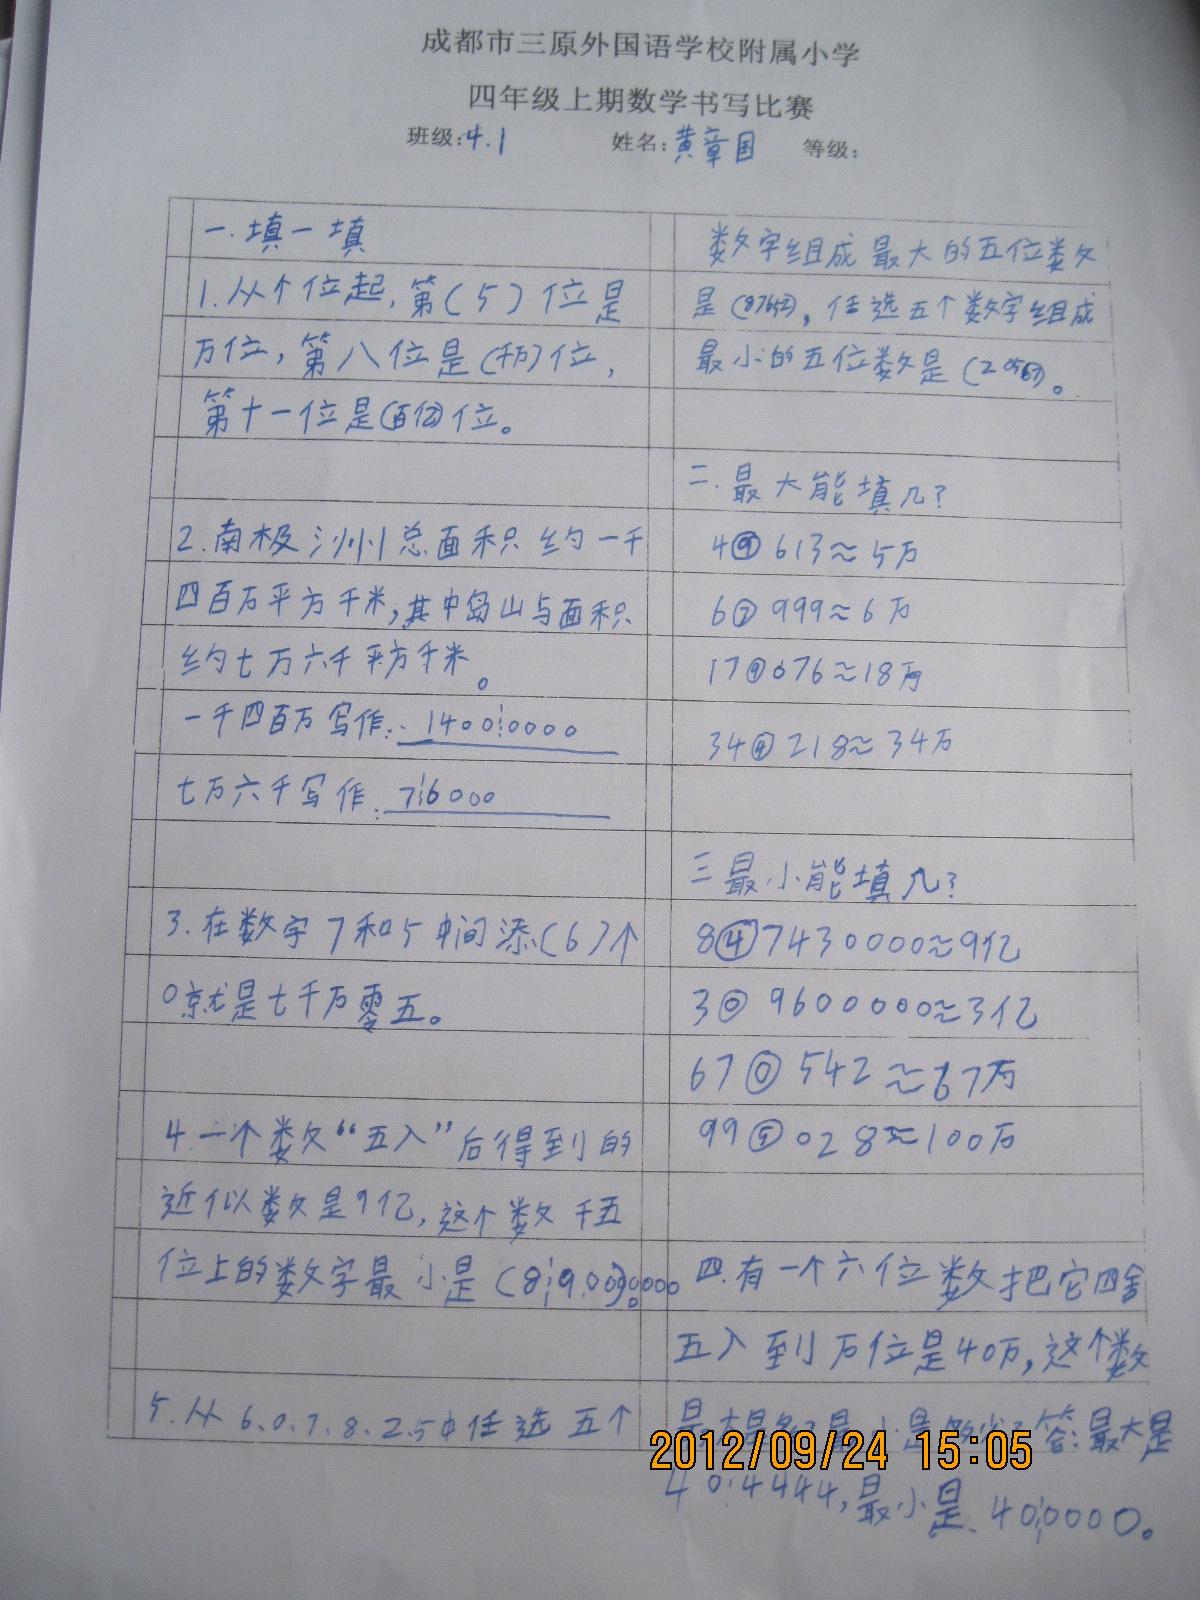 成都市三原外国语学校附属小学
四年级上期数学书写比赛
班级:4.1 姓名:黄章国 等级:
一.填一填
1.从个位起,第(5)位是
万位,第八位是(千万)位,
第十一位是(百亿)位。
2.南极洲总面积约一千
四百万平方千米,其中岛山与面积
约七万六千平方千米。
一千四百万写作: 1400┆0000
七万六千写作: 7┆6000
3.在数字7和5中间添(6)个
0就是七千万零五。
4.一个数“五入”后得到的
近似数是9亿,这个数千五
位上的数字最小是(8┆9000┆0000)。
5.从6、0、7、8、2、5中任选五个
数字组成最大的五位数
是(87652),任选五个数字组成
最小的五位数是(20567)。
二.最大能填几?
4⑨613≈5万
6⑦999≈6万
17⑨076≈18万
34④218≈34万
三最小能填几?
8④7430000≈9亿
3⓪9600000≈3亿
67⓪542≈67万
99⑤028≈100万
四.有一个六位数把它四舍
五入到万位是40万,这个数
最大是多少?最小是多少?答:最大是
40┆4444,最小是40┆0000。
2012/09/24 15:05